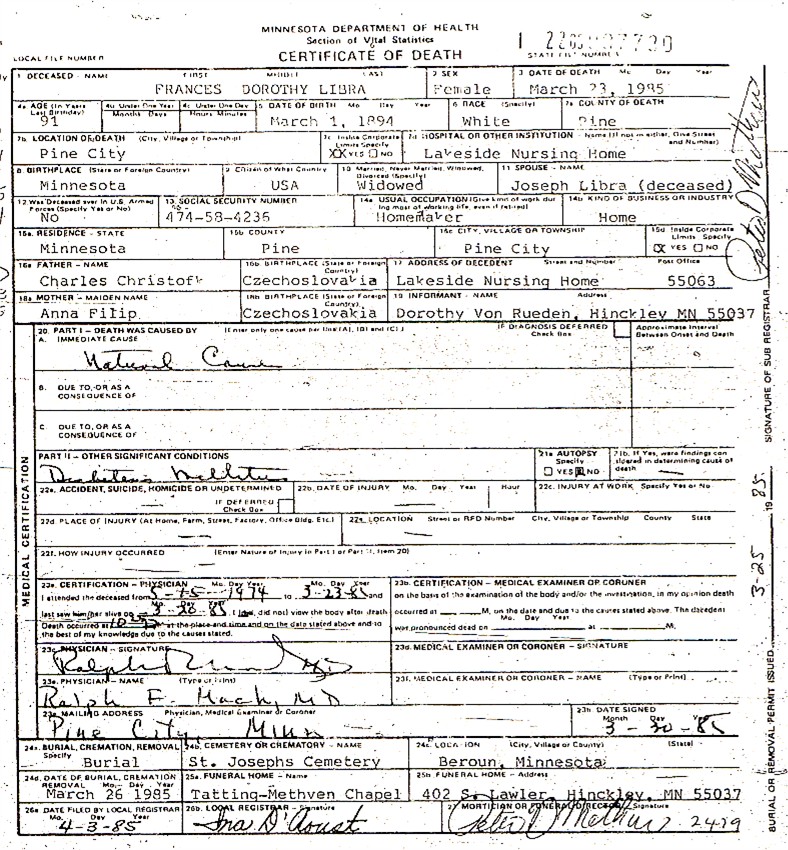 MINNESOTA DEPARTMENT OF HEALTH
Section of Vital Statistics
CERTIFICATE OF DEATH
LOCAL FILE NUMBER
STATE FILE NUMBER
1 DECEASED - NAME FIRST MIDDLE LAST 2 SEX 3 DATE OF DEATH Mo Day Year
FRANCES DOROTHY LIBRA Female March 23, 1985
4a AGE (In Years Last Birthday) 4b Under One Year Months Days 4c Under One Day Hours Minutes 5 DATE OF BIRTH Mo Day Year 6 RACE (Specify) 7a COUNTY OF DEATH
91 March 1, 1894 White Pine
7b. LOCATION OF DEATH (City, Village or Township) 7c Inside Corporate Limits Specify 7d HOSPITAL OR OTHER INSTITUTION - Name (If not in either, Give Street and Number)
Pine City XX YES NO Lakeside Nursing Home
8. BIRTHPLACE (State or Foreign Country) 9 Citizen of What Country 10 Married, Never Married, Widowed, Divorced (Specify) 11 SPOUSE - NAME
Minnesota USA Widowed Joseph Libra (deceased)
12 Was Deceased ever in U.S. Armed Forces (Specify Yes or No) 13. SOCIAL SECURITY NUMBER 14a USUAL OCCUPATION (Give kind of work during most of working life, even if retired) 14b KIND OF BUSINESS OR INDUSTRY
NO 474-58-4236 Homemaker Home
15a. RESIDENCE - STATE 15b COUNTY 15c CITY, VILLAGE OR TOWNSHIP 15d Inside Corporate Limits Specify
Minnesota Pine Pine City X YES NO
16a FATHER - NAME 16b BIRTHPLACE (State or Foreign Country) 17 ADDRESS OF DECEDENT Street and Number Post Office
Charles Christofk Czechoslovakia Lakeside Nursing Home 55063
18a MOTHER - MAIDEN NAME 18b BIRTHPLACE (State or Foreign Country) 19 INFORMANT - NAME Address
Anna Filip Czechoslovakia Dorothy Von Rueden, Hinckley MN 55037
20. PART I - DEATH WAS CAUSED BY (Enter only one cause per line (A), (B) and (C).) IF DIAGNOSIS DEFERRED Check Box Approximate Interval Between Onset and Death
A. IMMEDIATE CAUSE
Natural Causes
B. DUE TO, OR AS A CONSEQUENCE OF
C DUE TO, OR AS A CONSEQUENCE OF
PART II - OTHER SIGNIFICANT CONDITIONS 21a AUTOPSY Specify YES NO 21b. If Yes, were findings considered in determining cause of death
Diabetes Mellitus
22a. ACCIDENT, SUICIDE, HOMICIDE OR UNDETERMINED IF DEFERRED Check Box 22b. DATE OF INJURY Mo. Day Year Hour 22c. INJURY AT WORK Specify Yes or No
22d. PLACE OF INJURY (At Home, Farm, Street, Factory, Office Bldg. Etc.) 22e. LOCATION Street or RFD Number City, Village or Township County State
22f. HOW INJURY OCCURRED (Enter Nature of Injury in Part I or Part II, Item 20)
23a. CERTIFICATION - PHYSICIAN Mo. Day Year Mo. Day Year 23b. CERTIFICATION - MEDICAL EXAMINER OR CORONER
I attended the deceased from 5-15-1974 to 3-23-85 and on the basis of the examination of the body and/or the investigation, in my opinion death
last saw him/her alive on 3-20-85. I (did, did not) view the body after death occurred at M, on the date and due to the causes stated above. The decedent
Death occurred at M at the place and time and on the date stated above and to was pronounced dead on at M.
the best of my knowledge due to the causes stated.
23c. PHYSICIAN - SIGNATURE 23d. MEDICAL EXAMINER OR CORONER - SIGNATURE
23e. PHYSICIAN - NAME (Type or Print) 23f. MEDICAL EXAMINER OR CORONER - NAME (Type or Print)
Ralph F Mach, MD
23g MAILING ADDRESS Physician, Medical Examiner or Coroner 23h DATE SIGNED Month Day Year
Pine City, Minn 3-30-85
24a. BURIAL, CREMATION, REMOVAL Specify 24b. CEMETERY OR CREMATORY - NAME 24c. LOCATION (City, Village or County) (State)
Burial St. Josephs Cemetery Beroun, Minnesota
24d. DATE OF BURIAL, CREMATION REMOVAL Mo. Day Year 25a. FUNERAL HOME - Name 25b FUNERAL HOME - Address
March 26 1985 Tatting-Methven Chapel 402 S. Lawler, Hinckley, MN 55037
26a DATE FILED BY LOCAL REGISTRAR Mo. Day Year 26b. LOCAL REGISTRAR - Signature 27 MORTICIAN OR FUNERAL DIRECTOR - Signature
4-3-85 Ina D'Aoust Peter D Methven 2479
MEDICAL CERTIFICATION
BURIAL OR REMOVAL PERMIT ISSUED 3-25 1985. SIGNATURE OF SUB REGISTRAR Peter D Methven